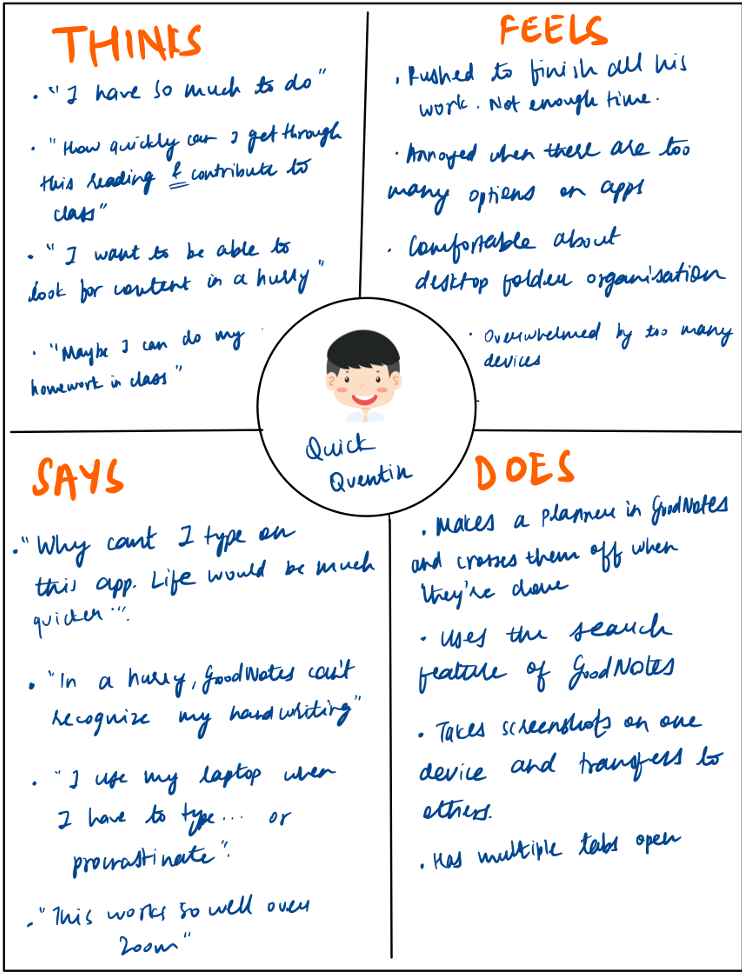 THINKS
• "I have so much to do"
• "How quickly can I get through
this reading & contribute to
class"
• "I want to be able to
look for content in a hurry"
• "Maybe I can do my
homework in class"
FEELS
• Rushed to finish all his
work. Not enough time.
• Annoyed when there are too
many options on apps
• Comfortable about
desktop folder organisation
• Overwhelmed by too many
devices
Quick
Quentin
SAYS
• "Why can't I type on
this app. Life would be much
quicker".
• "In a hurry, GoodNotes can't
recognize my handwriting"
• "I use my laptop when
I have to type... or
procrastinate".
• "This works so well over
Zoom"
DOES
• Makes a planner in GoodNotes
and crosses them off when
they're done
• Uses the search
feature of GoodNotes
• Takes screenshots on one
device and transfers to
others.
• Has multiple tabs open